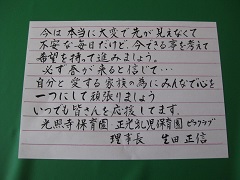 今は本当に大変で先が見えなくて
不安な毎日だけど、今できる事を考えて
希望を持って進みましょう。
必ず春が来ると信じて…
自分と愛する家族の為にみんなで心を
一つにして頑張りましょう
いつでも皆さんを応援してます。
光照寺保育園 正光乳児保育園
理事長 生田 正信